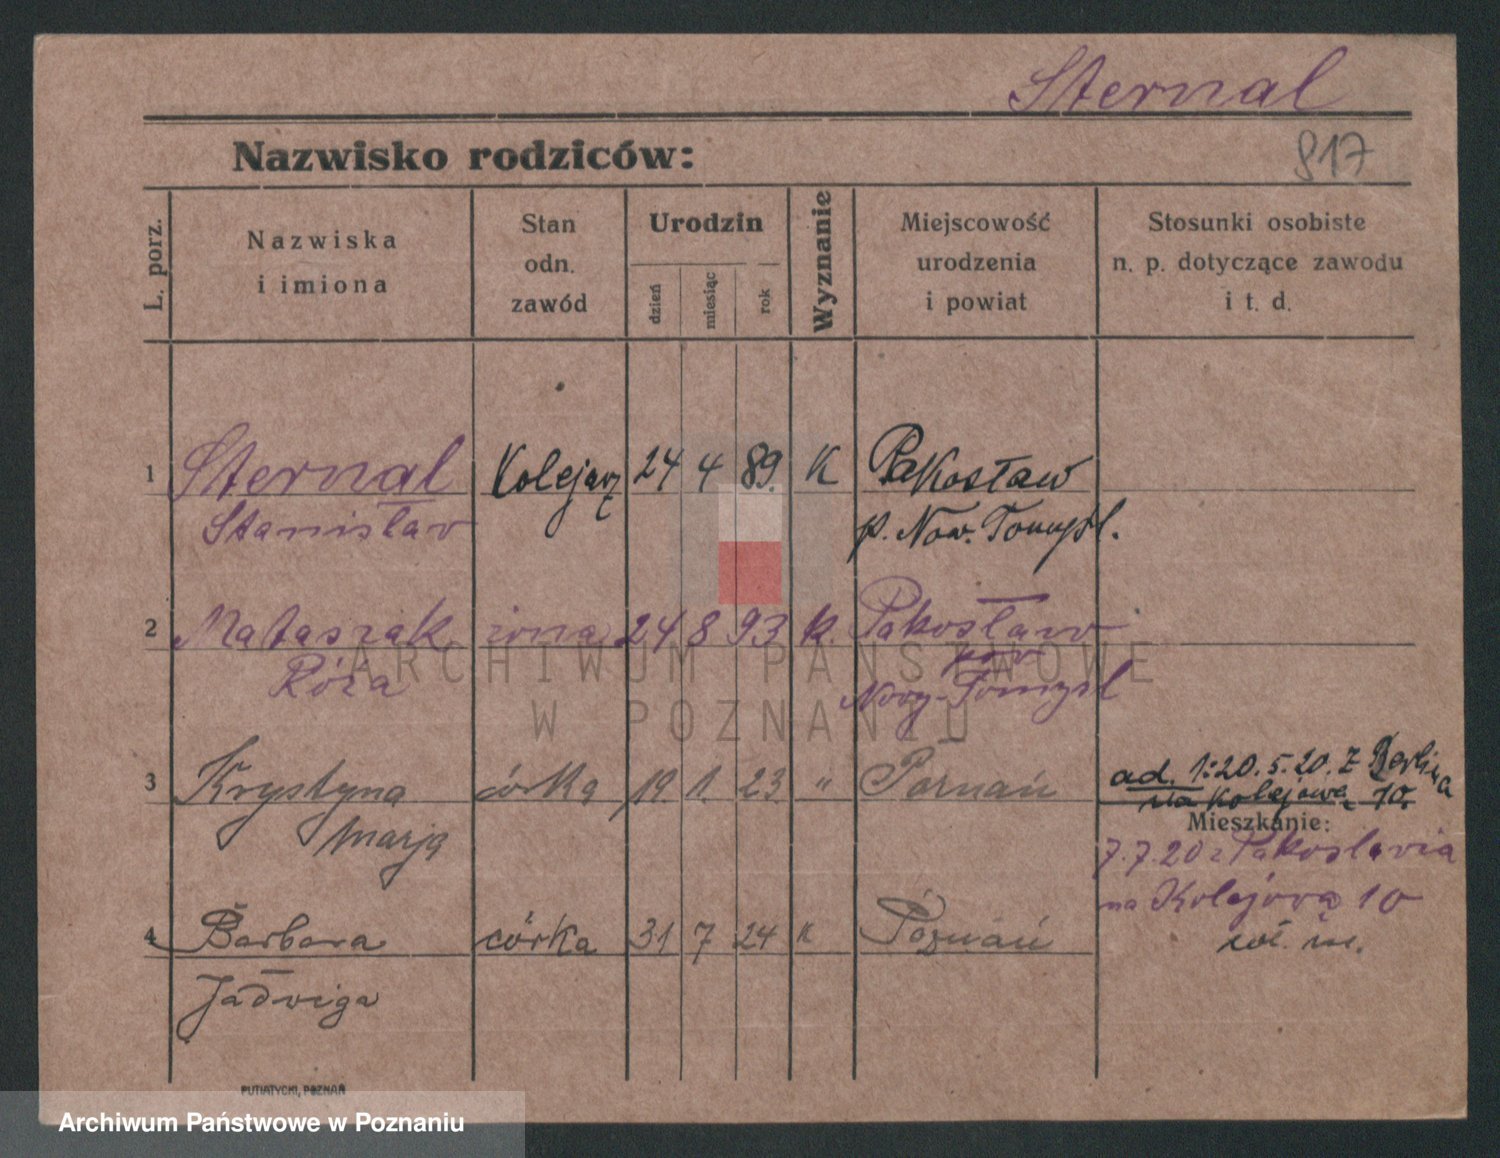 Sternal
817
Nazwisko rodziców:
L. porz.
Nazwiska
i imiona
Stan
odn.
zawód
Urodzin
dzień
miesiąc
rok
Wyznanie
Miejscowość
urodzenia
i powiat
Stosunki osobiste
n. p. dotyczące zawodu
i t. d.
1 Sternal Kolejarz 24 4 89. K Pakosław
Stanisław p. Now. Tomyśl.
2 Mataszak żona 24 8 93 k. Pakosław
Róża pow
Nowy-Tomyśl
3 Krystyna córka 19. 1. 23. " Poznań
Marja
ad. 1:20.5.20. z Berlina
na Kolejową 10.
Mieszkanie:
7.7.20 z Pakoslavia
na Kolejową 10
4 Barbara córka 31 7 24 K Poznań
Jadwiga
PUTIATYCKI, POZNAŃ
ARCHIWUM PAŃSTWOWE
W POZNANIU
Archiwum Państwowe w Poznaniu